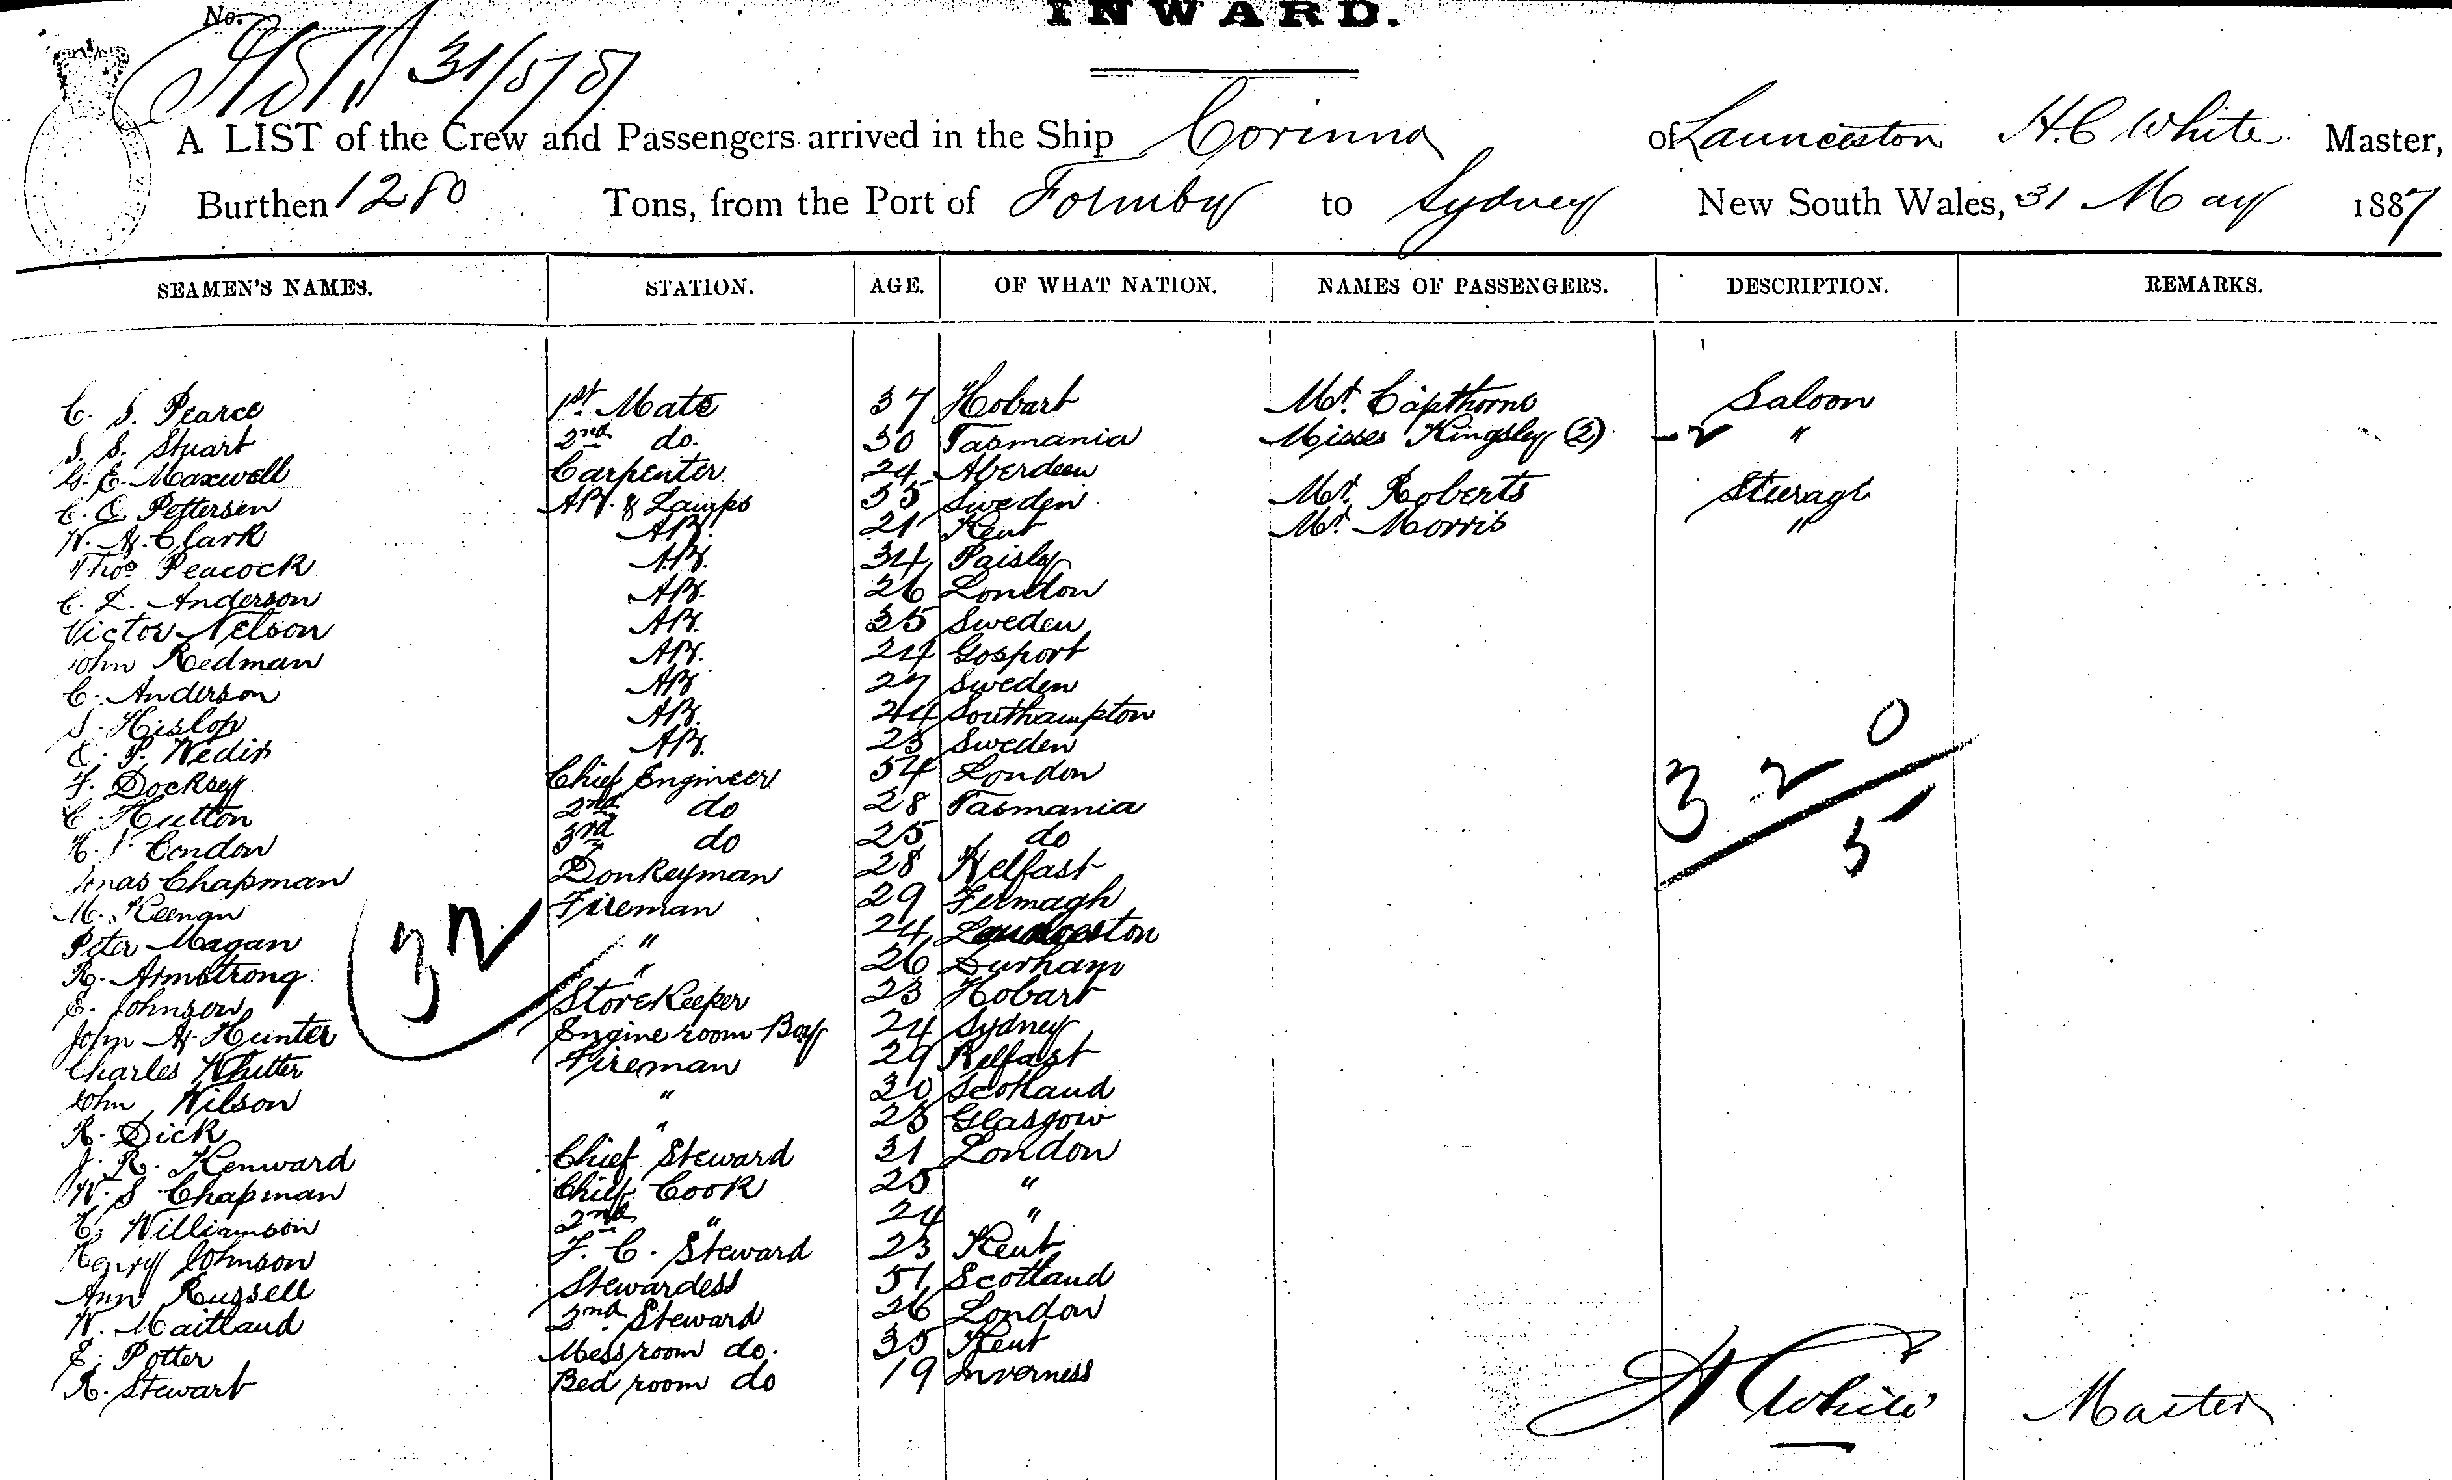 INWARD.
No.
A LIST of the Crew and Passengers arrived in the Ship Corinna of Launceston H.C White Master,
Burthen 1280 Tons, from the Port of Formby to Sydney New South Wales, 31 May 1887
SEAMEN'S NAMES. STATION. AGE. OF WHAT NATION. NAMES OF PASSENGERS. DESCRIPTION. REMARKS.
C. S. Pearce 1st. Mate 37 Hobart Mr. Capthorne Saloon
S. S. Stuart 2nd do. 30 Tasmania Misses Kingsley (2) 2 "
G. E. Maxwell Carpenter 24 Aberdeen
C. O. Pettersen AB. & Lamps 35 Sweden Mr. Roberts Steerage
W. H. Clark AB. 21 Kent Mr. Morris "
Thos Peacock AB. 34 Paisley
C. L. Anderson AB. 26 London
Victor Nelson AB. 35 Sweden
John Redman AB. 24 Gosport
C. Anderson AB 27 Sweden
S. Hislop AB. 24 Southampton
C. P. Wedin AB. 23 Sweden
F. Docksey Chief Engineer 54 London
C. Hutton 2nd do 28 Tasmania
Condon 3rd do 25 do
Chapman Donkeyman 28 Belfast
M. Keenan Fireman 29 Fermagh
Peter Magan " 24 Launceston
R. Armstrong " 26 Durham
E. Johnson Storekeeper 23 Hobart
John H. Hunter Engine room Boy 24 Sydney
Charles Fireman 29 Belfast
John Wilson " 30 Scotland
R. Dick " 23 Glasgow
J. R. Kenward Chief Steward 31 London
W. S Chapman Chief Cook 25 "
C. Williamson 2nd " 24 "
Henry Johnson F. C. Steward 23 Kent
Ann Russell Stewardess 51 Scotland
W. Maitland 2nd Steward 26 London
E. Potter Messroom do. 35 Kent
R. Stewart Bed room do 19 Inverness
32
3 2 0
5
H C White Master